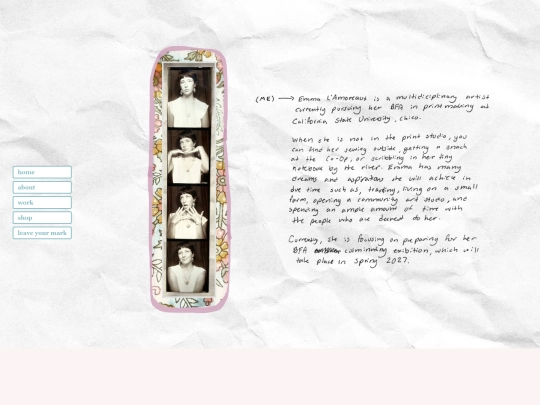 home
about
work
shop
leave your mark
(ME) → Emma L'Amoreaux is a multidiciplinary artist
currently pursuing her BFA in printmaking at
California State University, Chico.
When she is not in the print studio, you
can find her sewing outside, getting a snack
at the Co-Op, or scribbling in her tiny
notebook by the river. Emma has many
dreams and aspirations she will achieve in
due time such as, traveling, living on a small
farm, opening a community art studio, and
spending an ample amount of time with
the people who are dearest to her.
Currently, she is focusing on preparing for her
BFA culminating exibition, which will
take place in Spring 2027.